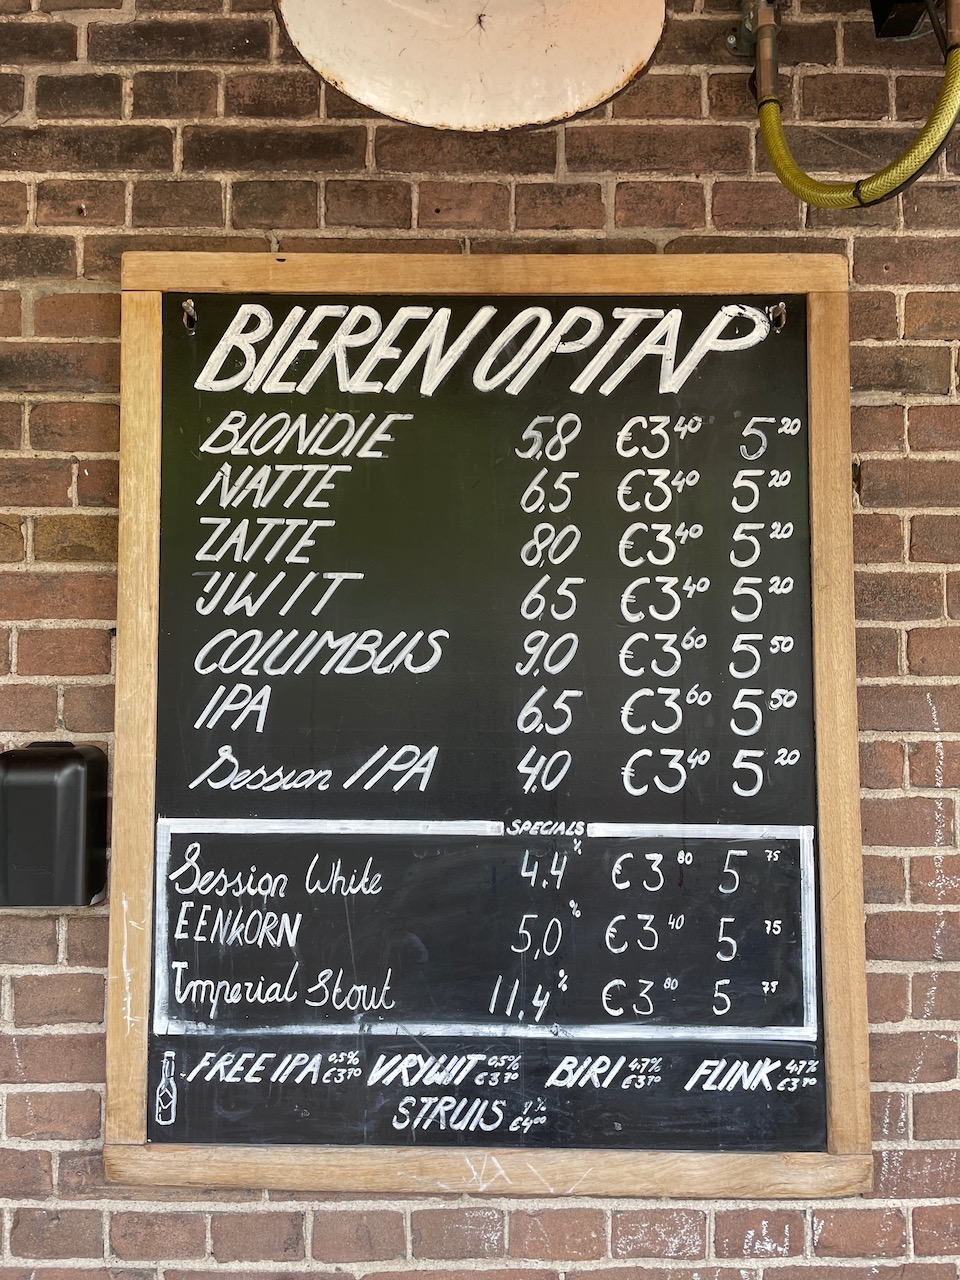 BIEREN OP TAP
BLONDIE 5,8 €3⁴⁰ 5²⁰
NATTE 6,5 €3⁴⁰ 5²⁰
ZATTE 8,0 €3⁴⁰ 5²⁰
IJWIT 6,5 €3⁴⁰ 5²⁰
COLUMBUS 9,0 €3⁶⁰ 5⁵⁰
IPA 6,5 €3⁶⁰ 5⁵⁰
Session IPA 4,0 €3⁴⁰ 5²⁰
SPECIALS
Session White 4.4% €3⁸⁰ 5⁷⁵
EENKORN 5,0% €3⁴⁰ 5⁷⁵
Imperial Stout 11,4% €3⁸⁰ 5⁷⁵
FREE IPA 0,5% €3⁷⁰ VRIJWIT 0,5% €3⁷⁰ BIRI 4,7% €3⁷⁰ FLINK 4,7% €3⁷⁰
STRUIS 9% €4⁰⁰